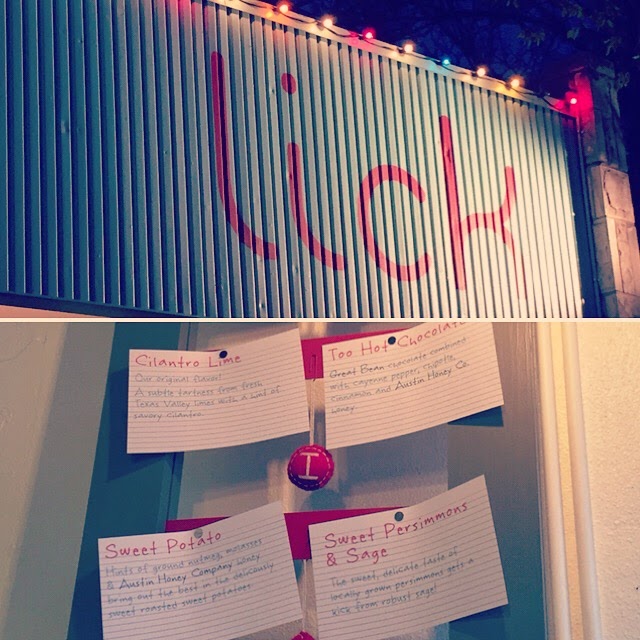 lick
Cilantro Lime
Our original flavor!
A subtle tartness from fresh
Texas Valley limes with a hint of
savory cilantro.
Too Hot Chocolate
Great Bean chocolate combined
with cayenne pepper, chipotle,
cinnamon and Austin Honey Co.
honey
I
Sweet Potato
Hints of ground nutmeg, molasses
& Austin Honey Company honey
bring out the best in the deliciously
sweet roasted sweet potatoes
Sweet Persimmons
& Sage
The sweet, delicate taste of
locally grown persimmons gets a
kick from robust sage!